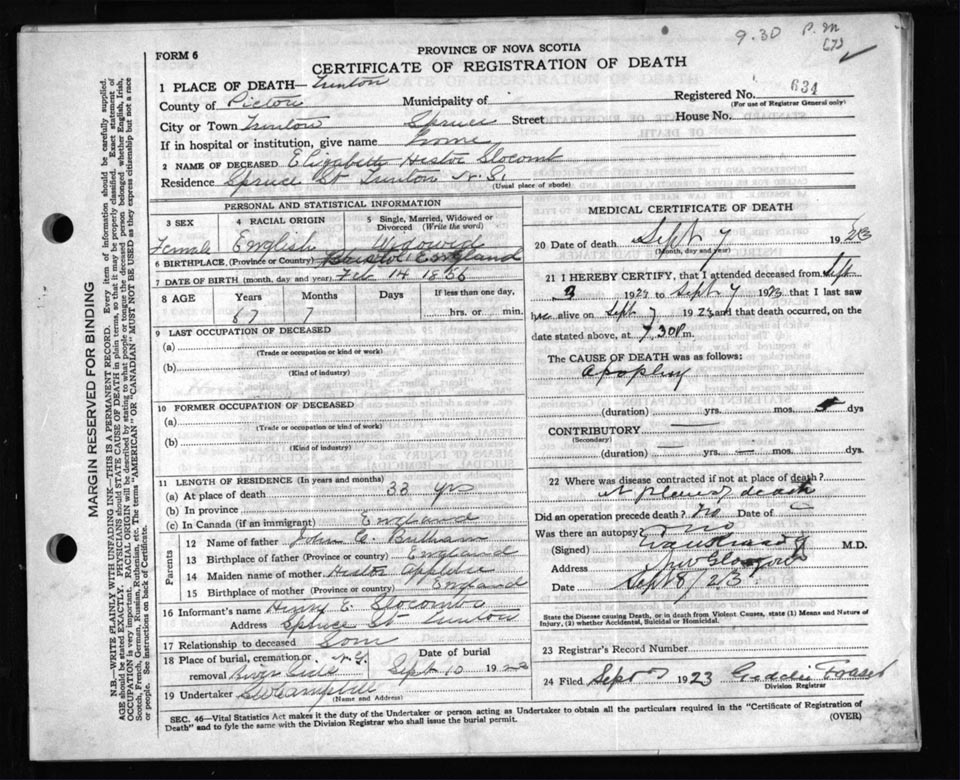 9.30 P.M
(7)
FORM 6
PROVINCE OF NOVA SCOTIA
CERTIFICATE OF REGISTRATION OF DEATH
1 PLACE OF DEATH— Trenton
Registered No. 634
(For use of Registrar General only)
County of Pictou Municipality of
City or Town Trenton Spruce Street House No.
If in hospital or institution, give name home
2 NAME OF DECEASED Elizabeth Hester Slocomb
Residence Spruce St Trenton N.S.
(Usual place of abode)
PERSONAL AND STATISTICAL INFORMATION
3 SEX 4 RACIAL ORIGIN 5 Single, Married, Widowed or Divorced (Write the word)
Female English Widowed
6 BIRTHPLACE, (Province or Country) Bristol England
7 DATE OF BIRTH (month, day and year) Feb 14 1856
8 AGE Years Months Days If less than one day,
67 7 hrs. or min.
9 LAST OCCUPATION OF DECEASED
(a)
(Trade or occupation or kind or work)
(b)
(Kind of industry)
10 FORMER OCCUPATION OF DECEASED
(a)
(Trade or occupation or kind of work)
(b)
(Kind of industry)
11 LENGTH OF RESIDENCE (In years and months)
(a) At place of death 33 yrs
(b) In province
(c) In Canada (if an immigrant) England
Parents
12 Name of father John
13 Birthplace of father (Province or Country) England
14 Maiden name of mother Hester
15 Birthplace of mother (Province or Country) England
16 Informant's name Henry E. Slocomb
Address Spruce St Trenton
17 Relationship to deceased Son
18 Place of burial, cremation or removal Date of burial
River Side N.S. Sept 10 192
19 Undertaker Campbell
(Name and Address)
MEDICAL CERTIFICATE OF DEATH
20 Date of death Sept 7 1923
(Month, day and year)
21 I HEREBY CERTIFY, that I attended deceased from Sept
3 192 to Sept 7 1923 that I last saw
her alive on Sept 7 1923 and that death occurred, on the
date stated above, at 7 30 P.m.
The CAUSE OF DEATH was as follows:
Apoplexy
(duration) yrs. mos. 5 dys
CONTRIBUTORY —
(Secondary)
(duration) — yrs. — mos. — dys.
22 Where was disease contracted if not at place of death?
At place of death
Did an operation precede death? No Date of
Was there an autopsy? No
(Signed) M.D.
Address New Glasgow
Date Sept 8/23
State the Disease causing Death, or in death from Violent Causes, state (1) Means and Nature of
Injury, (2) whether Accidental, Suicidal or Homicidal.
23 Registrar's Record Number
24 Filed Sept 1923 Fraser
Division Registrar
SEC. 46—Vital Statistics Act makes it the duty of the Undertaker or person acting as Undertaker to obtain all the particulars required in the "Certificate of Registration of
Death" and to fyle the same with the Division Registrar who shall issue the burial permit. (OVER)
MARGIN RESERVED FOR BINDING
N.B.—WRITE PLAINLY WITH UNFADING INK—THIS IS A PERMANENT RECORD. Every item of information should be carefully supplied.
AGE should be stated EXACTLY. PHYSICIANS should STATE CAUSE OF DEATH in plain terms, so that it may be properly classified. Exact statement of
OCCUPATION is very important. RACIAL ORIGIN will be described by stating to what people or tongue the deceased person belonged whether English, Irish,
Scotch, French, German, Russian, Ruthenian, etc. The terms "AMERICAN" OR "CANADIAN" MUST NOT BE USED as they express citizenship but not a race
or people. See instructions on back of Certificate.